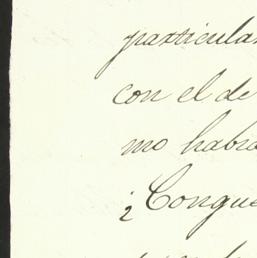 particular
con el de
mo habra
¿Congue